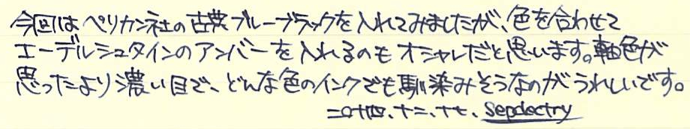 今回はペリカン社の古典ブルーブラックを入れてみましたが、色を合わせて
エーデルシュタインのアンバーを入れるのもオシャレだと思います。軸色が
思ったより濃い目で、どんな色のインクでも馴染みそうなのがうれしいです。
二〇十四、十二、十七、Sepdectry